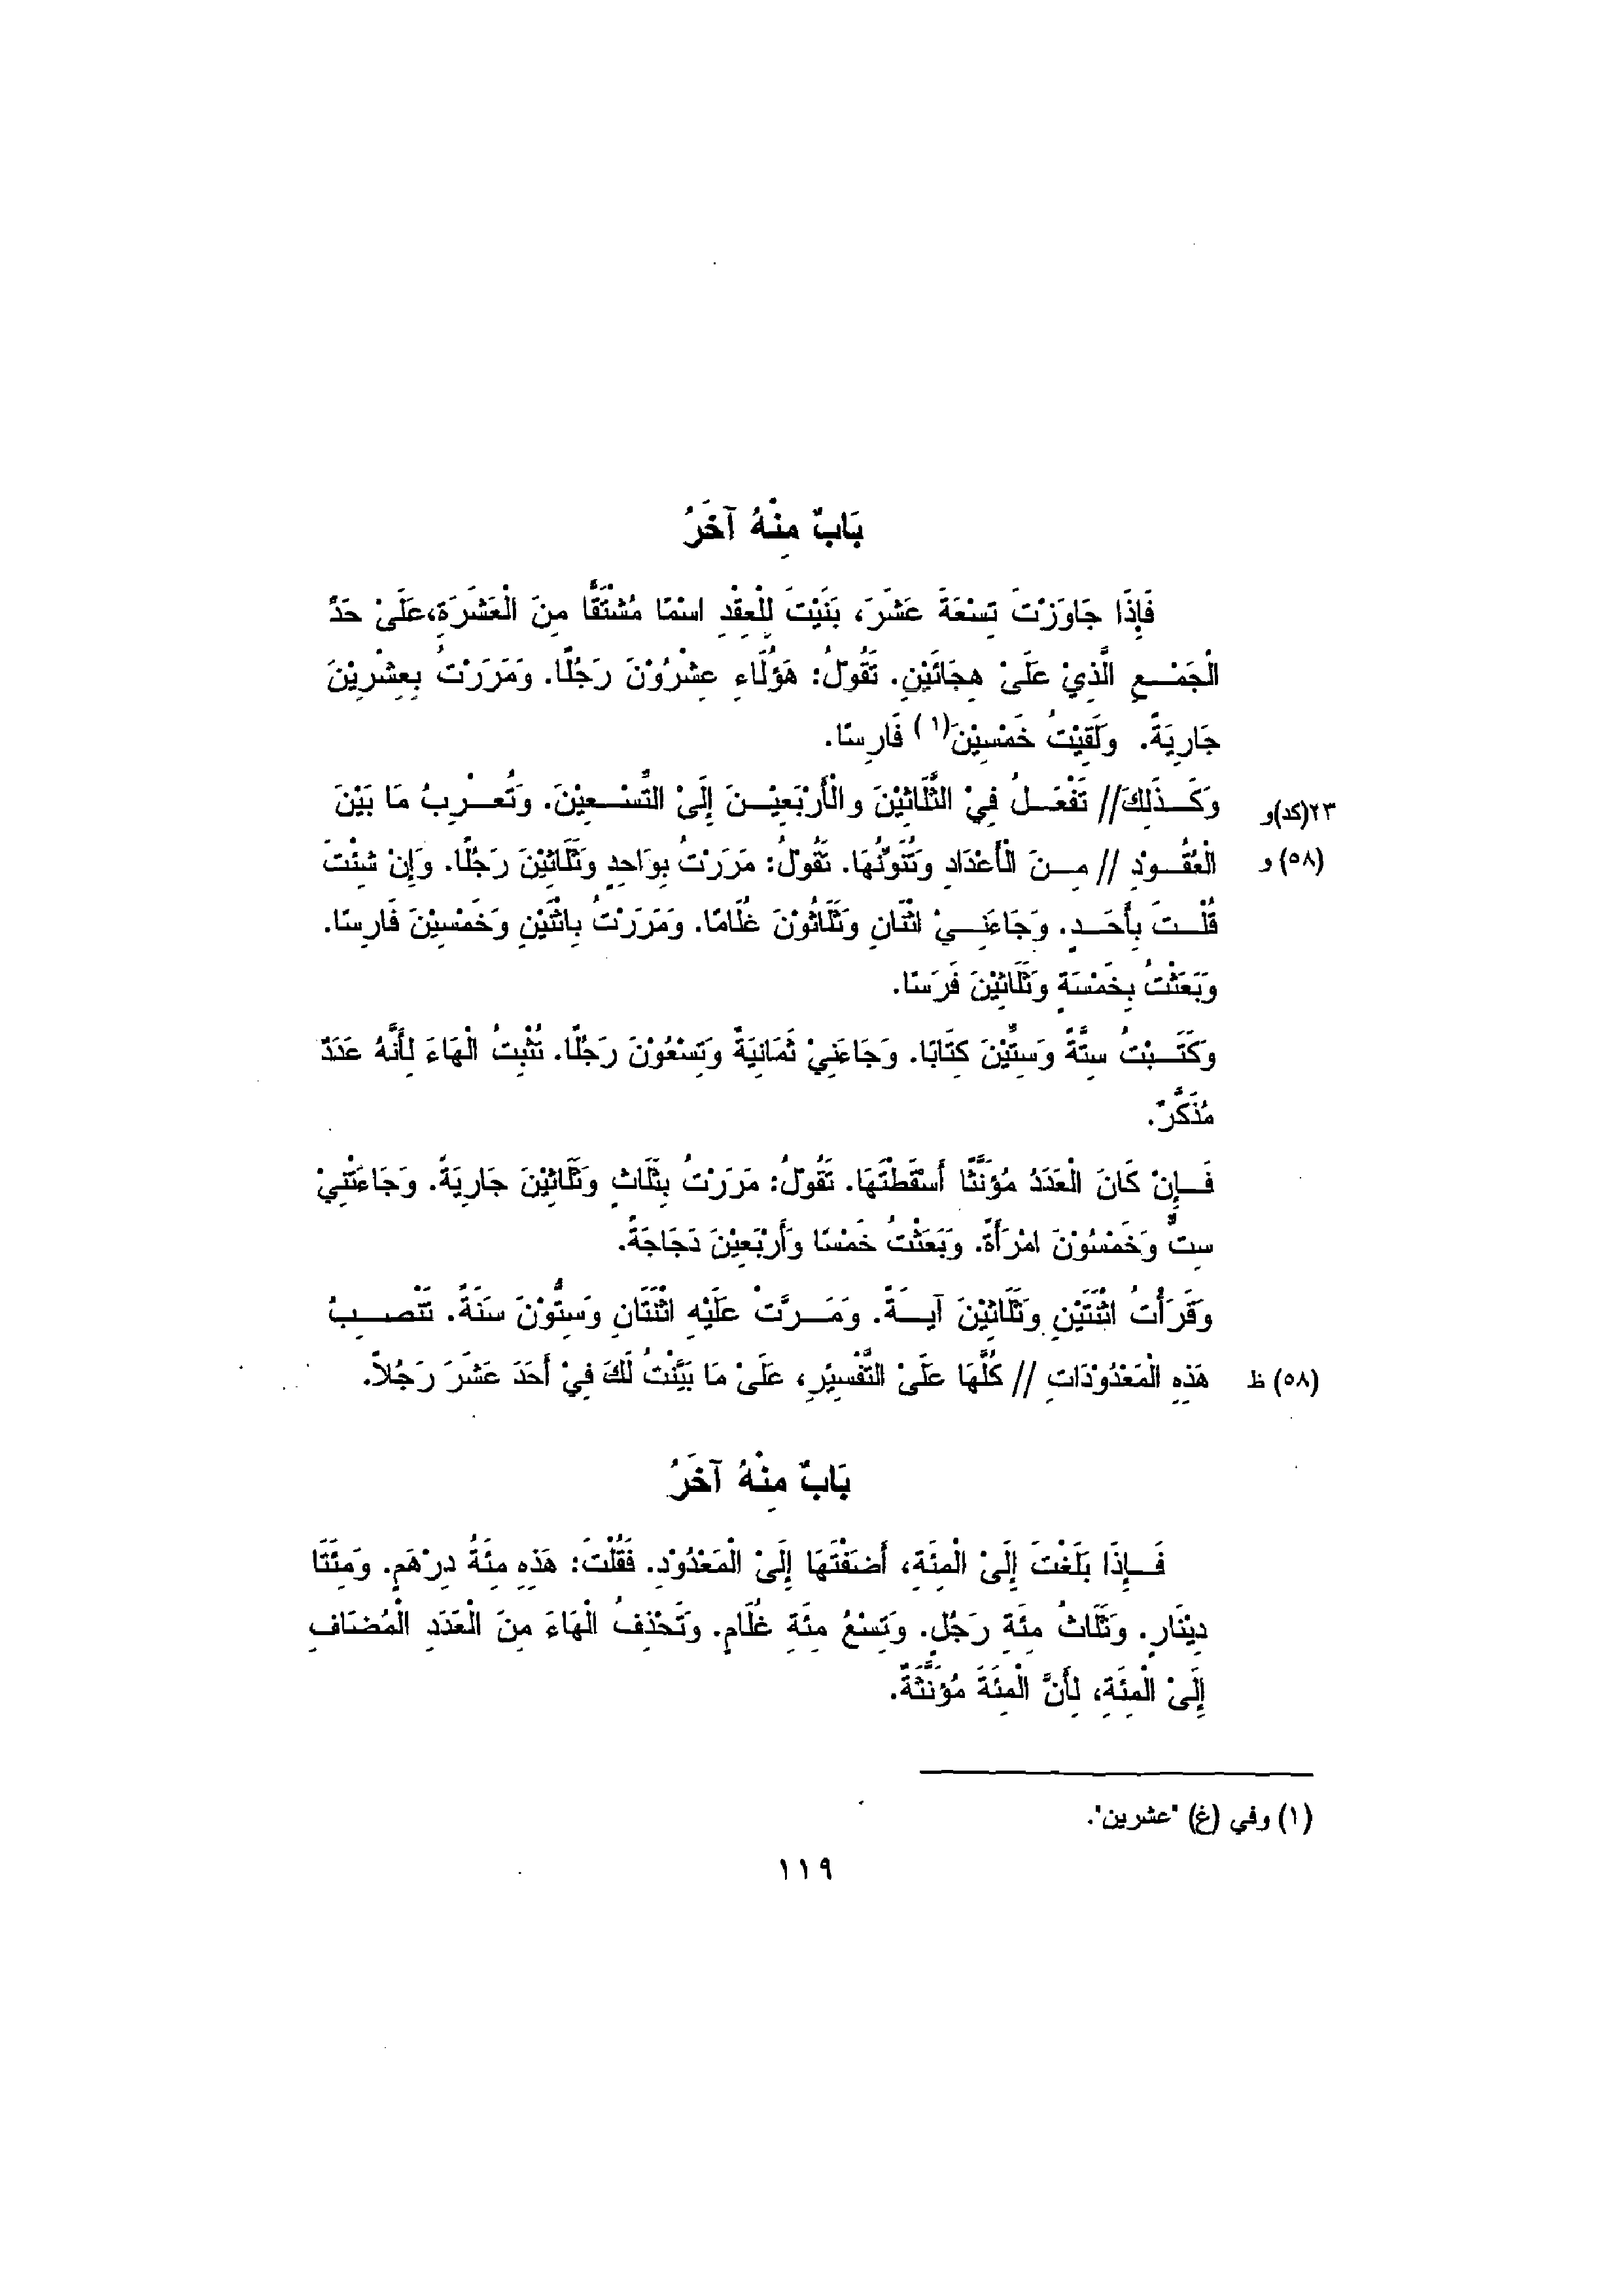 بَابٌ مِنْهُ آخَرُ
فَإِذَا جَاوَزْتَ تِسْعَةَ عَشَرَ، بَنَيْتَ لِلْعِقْدِ اسْمًا مُشْتَقًّا مِنَ الْعَشَرَةِ،عَلَىْ حَدِّ
الْجَمْعِ الَّذِيْ عَلَىْ هِجَائَيْنِ. تَقُوْلُ: هَؤُلَاءِ عِشْرُوْنَ رَجُلًا. وَمَرَرْتُ بِعِشْرِيْنَ
جَارِيَةً. وَلَقِيْتُ خَمْسِيْنَ(١) فَارِسًا.
وَكَذَلِكَ// تَفْعَلُ فِيْ الثَّلَاثِيْنَ والْأَرْبَعِيْنَ إِلَىْ التِّسْعِيْنَ. وَتُعْرِبُ مَا بَيْنَ ٢٣(كد)و
الْعُقُوْدِ // مِنَ الْأَعْدَادِ وَتُنَوِّنُهَا. تَقُوْلُ: مَرَرْتُ بِوَاحِدٍ وَثَلَاثِيْنَ رَجُلًا. وَإِنْ شِئْتَ (٥٨) و
قُلْتَ بِأَحَدٍ. وَجَاءَنِيْ اثْنَانِ وَثَلَاثُوْنَ غُلَامًا. وَمَرَرْتُ بِاثْنَيْنِ وَخَمْسِيْنَ فَارِسًا.
وَبَعَثْتُ بِخَمْسَةٍ وَثَلَاثِيْنَ فَرَسًا.
وَكَتَبْتُ سِتَّةً وَسِتِّيْنَ كِتَابًا. وَجَاءَنِيْ ثَمَانِيَةٌ وَتِسْعُوْنَ رَجُلًا. تُثْبِتُ الْهَاءَ لِأَنَّهُ عَدَدٌ
مُذَكَّرٌ.
فَإِنْ كَانَ الْعَدَدُ مُؤَنَّثًا أَسْقَطْتَهَا. تَقُوْلُ: مَرَرْتُ بِثَلَاثٍ وَثَلَاثِيْنَ جَارِيَةً. وَجَاءَتْنِيْ
سِتٌّ وَخَمْسُوْنَ امْرَأَةً. وَبَعَثْتُ خَمْسًا وَأَرْبَعِيْنَ دَجَاجَةً.
وَقَرَأْتُ اثْنَتَيْنِ وَثَلَاثِيْنَ آيَةً. وَمَرَّتْ عَلَيْهِ اثْنَتَانِ وَسِتُّوْنَ سَنَةً. تَنْصِبُ
هَذِهِ الْمَعْدُوْدَاتِ // كُلَّهَا عَلَىْ التَّفْسِيْرِ، عَلَىْ مَا بَيَّنْتُ لَكَ فِيْ أَحَدَ عَشَرَ رَجُلاً. (٥٨) ظ
بَابٌ مِنْهُ آخَرُ
فَإِذَا بَلَغْتَ إِلَىْ الْمِئَةِ، أَضَفْتَهَا إِلَىْ الْمَعْدُوْدِ. فَقُلْتَ: هَذِهِ مِئَةُ دِرْهَمٍ. وَمِئَتَا
دِيْنَارٍ. وَثَلَاثُ مِئَةِ رَجُلٍ. وَتِسْعُ مِئَةِ غُلَامٍ. وَتَحْذِفُ الْهَاءَ مِنَ الْعَدَدِ الْمُضَافِ
إِلَىْ الْمِئَةِ، لِأَنَّ الْمِئَةَ مُؤَنَّثَةٌ.
(١) وفي (غ) "عشرين".
١١٩